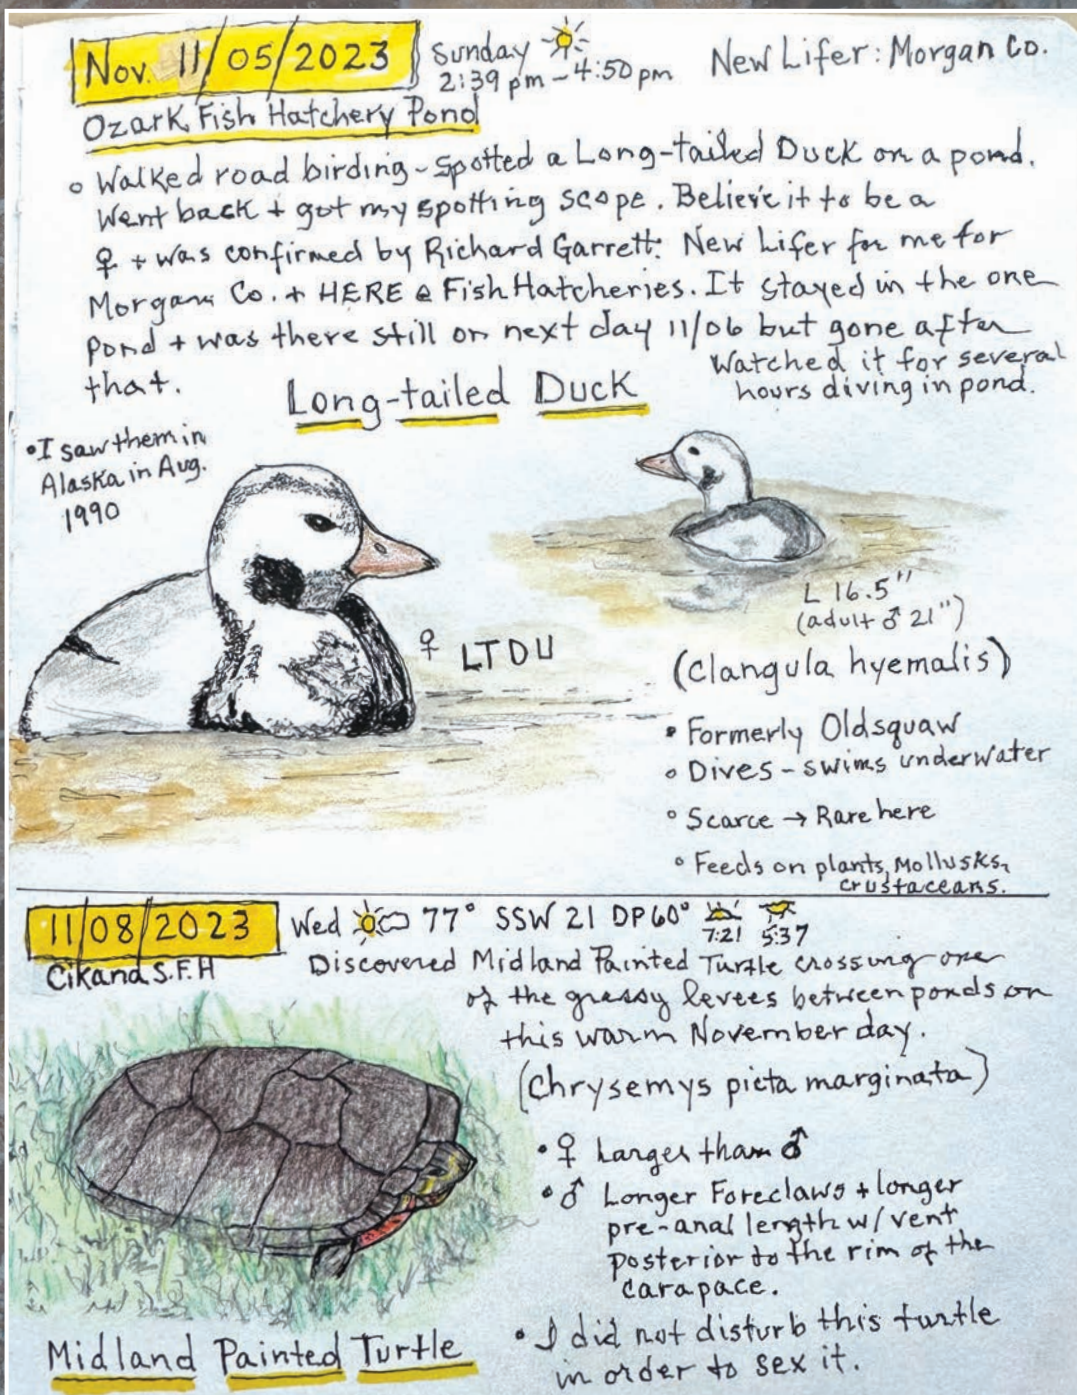 Nov. 11/05/2023
Sunday
2:39 pm - 4:50 pm
New Lifer: Morgan Co.
Ozark Fish Hatchery Pond
Walked road birding - spotted a Long-tailed Duck on a pond.
Went back + got my spotting scope. Believe it to be a
♀ + was confirmed by Richard Garrett. New Lifer for me for
Morgan Co. + HERE @ Fish Hatcheries. It stayed in the one
pond + was there still on next day 11/06 but gone after
that.
Watched it for several
hours diving in pond.
Long-tailed Duck
• I saw them in
Alaska in Aug.
1990
L 16.5"
(adult ♂ 21")
♀ LTDU
(Clangula hyemalis)
• Formerly Oldsquaw
• Dives - swims underwater
• Scarce → Rare here
• Feeds on plants, Mollusks,
crustaceans.
11/08/2023 Wed 77° SSW 21 DP 60°
7:21 5:37
Cikana S.F.H
Discovered Midland Painted Turtle crossing one
of the grassy levees between ponds on
this warm November day.
(Chrysemys picta marginata)
• ♀ Larger than ♂
• ♂ Longer Foreclaws + longer
pre-anal length w/ vent
posterior to the rim of the
carapace.
• I did not disturb this turtle
in order to sex it.
Midland Painted Turtle